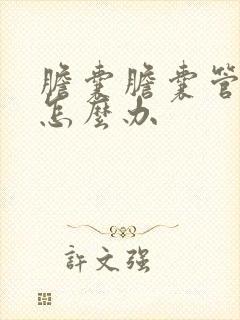 膽囊膽囊管
怎麼办
許文强